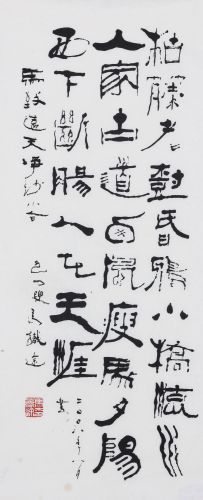 枯藤老樹昏鴉小橋流水
人家古道西風瘦馬夕陽
西下斷腸人在天涯
馬致遠天净沙小令
二〇〇八年八月